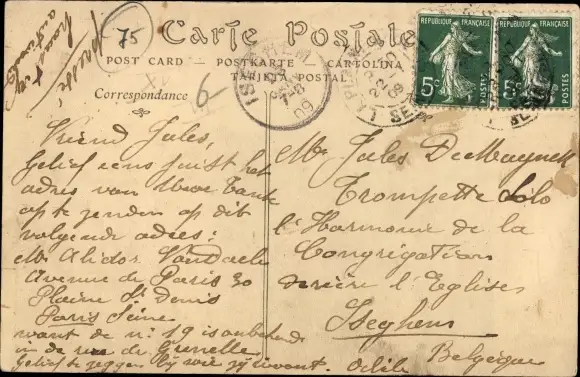 75
Carte Postale
POST CARD — POSTKARTE — CARTOLINA
TARJETA POSTAL
Correspondance
6
ISEGHEM
7-8
09
REPUBLIQUE FRANÇAISE
5c
POSTES
REPUBLIQUE FRANÇAISE
5c
POSTES
Vriend Jules,
Gelief eens juist het
adres van Uwe Tante
op te zenden op dit
volgende adres:
Mr Alidor Vandaele
Avenue de Paris 30
Plaine St Denis
Paris Seine
want de nr 19 is onbekend
in de rue de Grenelle
Gelief te zeggen bij wie zij woont. Odile
Mr Jules DeMuynck
Trompette Solo
l'Harmonie de la
Congrégation
derière l'Eglises
Iseghem
Belgique